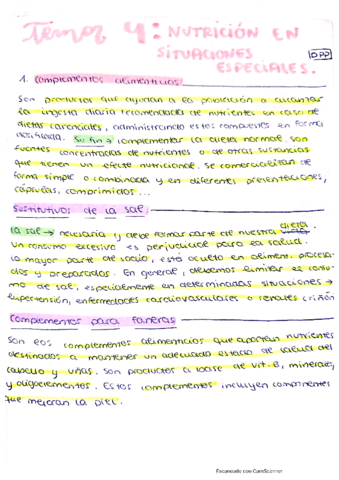 Tema 4: NUTRICIÓN EN
SITUACIONES
ESPECIALES.
1. Complementos alimenticios
Son productos que ayudan a la población a alcanzar
la ingesta diaria recomendada de nutrientes en caso de
dietas carenciales, administrando estos compuestos en forma
dosificada. Su fin → complementar la dieta normal. Son
fuentes concentradas de nutrientes o de otras sustancias
que tienen un efecto nutricional. Se comercializan de
forma simple o combinada y en diferentes presentaciones,
cápsulas, comprimidos...
Sustitutivos de la sal
La sal → necesaria y debe formar parte de nuestra dieta.
Un consumo excesivo es perjudicial para la salud.
La mayor parte de sodio, está oculto en aliment. procesa-
dos y preparados. En general, debemos limitar el consu-
mo de sal, especialmente en determinadas situaciones →
hipertensión, enfermedades cardiovasculares o renales (riñón
Complementos para faneras
Son los complementos alimenticios que aportan nutrientes
destinados a mantener un adecuado estado de salud del
cabello y uñas. Son productos a base de vit. B, minerales,
y oligoelementos. Estos complementos incluyen componentes
que mejoran la piel.
Escaneado con CamScanner